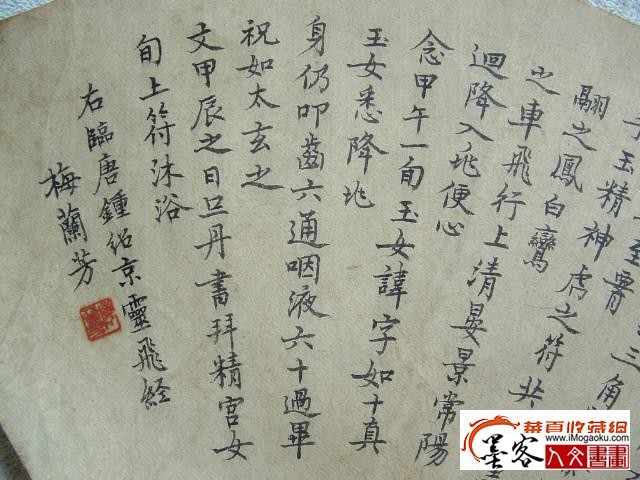 手玉精神虎之符
翮之鳳白鸞
之車飛行上清晏景常陽
迴降入兆便心
念甲午一旬玉女諱字如十真
玉女悉降兆
身仍叩齒六通咽液六十過畢
祝如太玄之
文甲辰之日旦丹書拜精宮女
旬上符沐浴
右臨唐鍾紹京靈飛経
梅蘭芳
華夏收藏網
www.iMogaoku.com
墨客
人文書畫